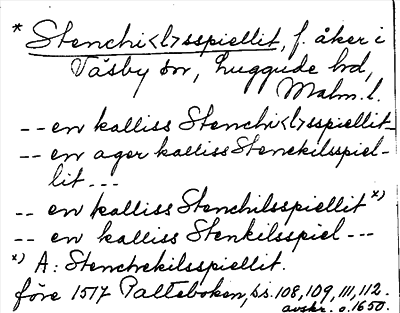 * Stenchi<l>sspiellit, f. åker i
Väsby sn, Luggude hd,
Malm. l.
-- en kalliss Stenchi<l>sspiellit
-- en ager kalliss Stenekilsspiel-
lit ---
-- en kalliss Stenchilsspiellit x)
-- en kalliss Stenkilsspiel ---
x) A: Stenchekilsspiellit.
före 1517 Palteboken, ss. 108, 109, 111, 112.
avskr. o. 1650.